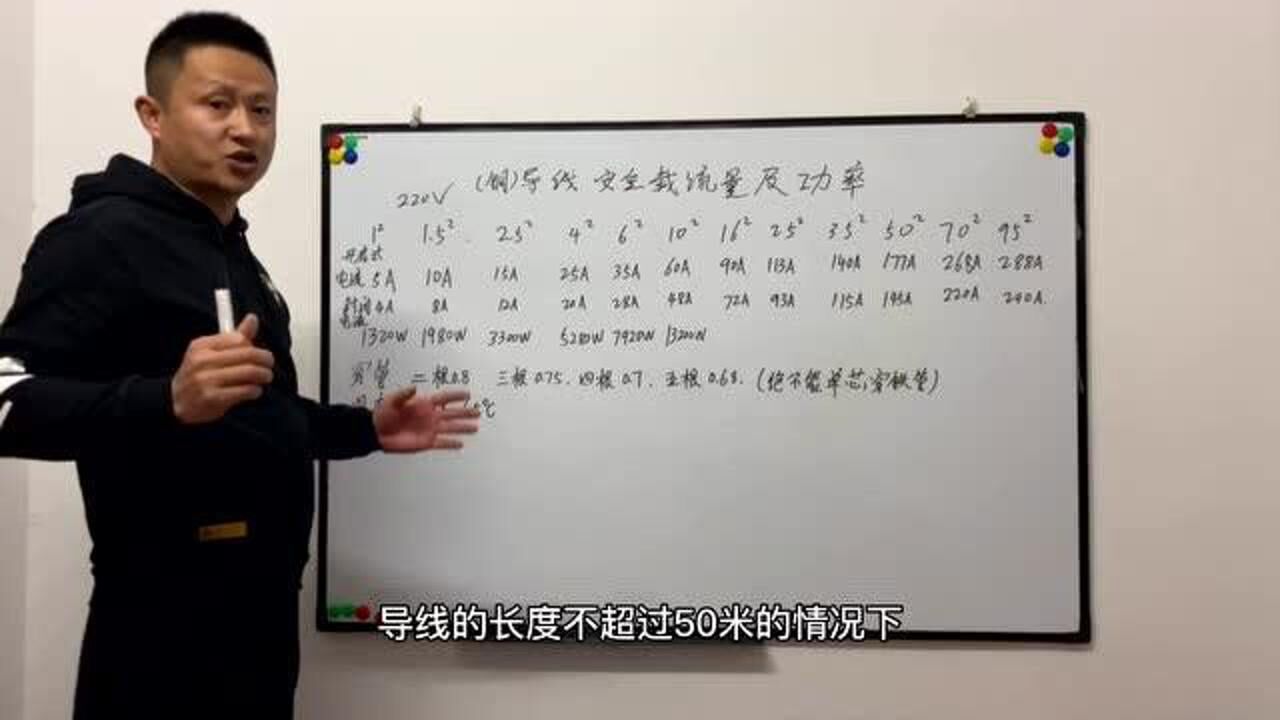 (铜)导线安全载流量及功率
220V
1² 1.5² 2.5² 4² 6² 10² 16² 25² 35² 50² 70² 95²
电流 5A 10A 15A 25A 35A 60A 90A 113A 140A 177A 268A 288A
封闭电流 4A 8A 12A 20A 28A 48A 72A 93A 115A 145A 220A 240A
1320W 1980W 3300W 5280W 7920W 13200W
穿管 二根0.8 三根0.75. 四根0.7. 五根0.68. (绝不能单芯穿铁管)
℃
导线的长度不超过50米的情况下